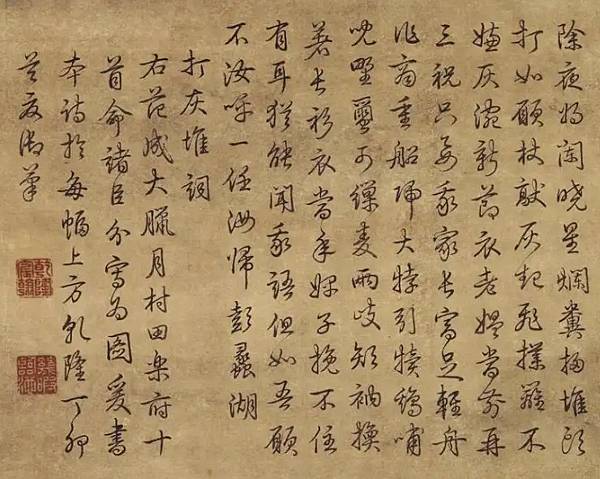 除夜將闌曉星爛糞掃堆頭
打如願杖敲灰起飛撲籬不
嫌灰涴新節衣老媼當前再
三祝只要我家長富足輕舟
作商重船歸大牸引犢雞哺
兒埜繭可繅麥兩岐短衲換
著長衫衣當年婢子挽不住
有耳猶能聞我語但如吾願
不汝呼一任汝歸彭蠡湖
打灰堆詞
右范成大臘月村田樂府十
首命諸臣分寫為圖爰書
本詩於每幅上方乾隆丁卯
長夏御筆
乾隆宸翰